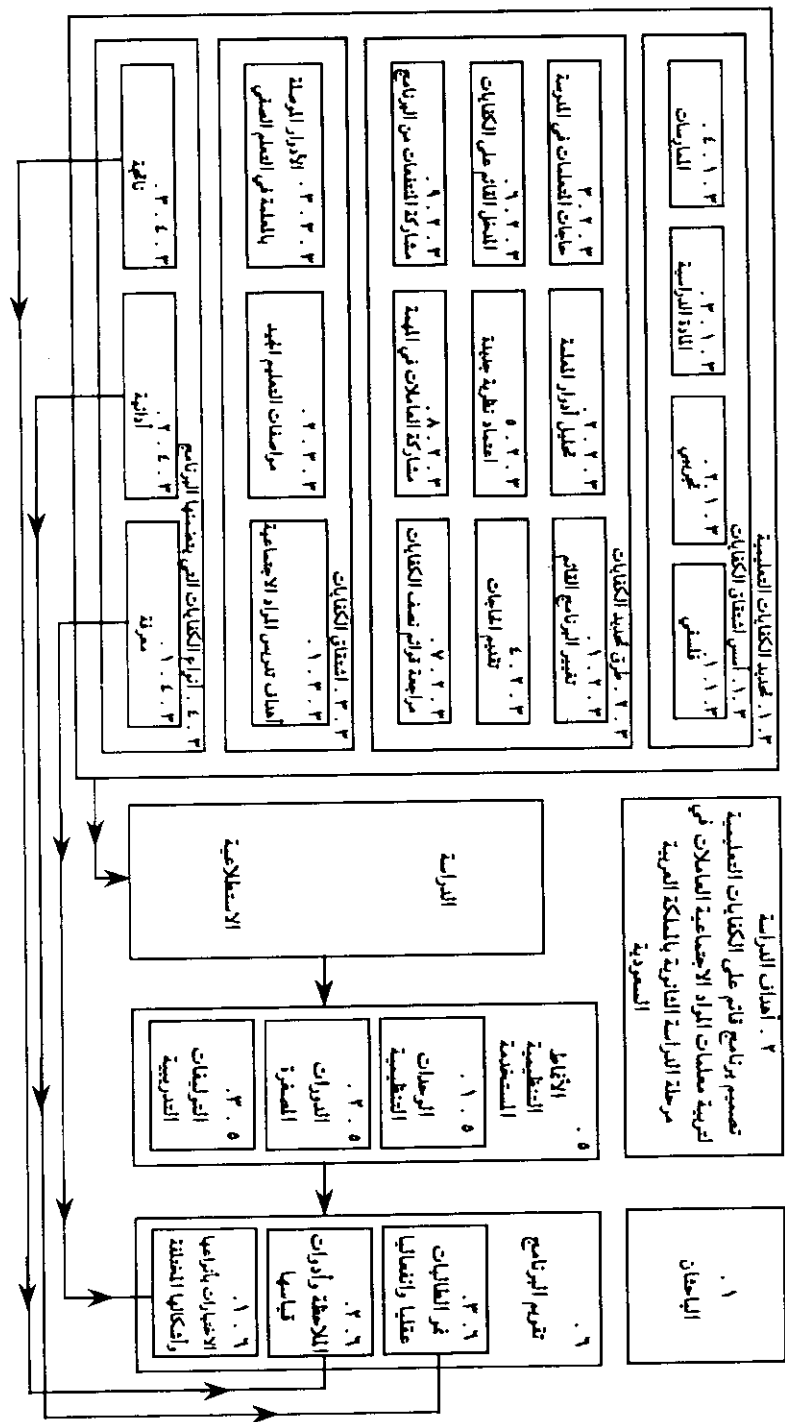 ٠١
الباحثان
٢ . أهداف الدراسة
تصميم برنامج قائم على الكفايات التعليمية
لتربية معلمات المواد الاجتماعية العاملات في
مرحلة الدراسة الثانوية بالمملكة العربية
السعودية
١.٣ . تحديد الكفايات التعليمية
١.٣ . أسس اشتقاق الكفايات
١.١.٣ .
فلسفي
٢.١.٣ .
تجريبي
٣.١.٣ .
المادة الدراسية
٤.١.٣ .
الممارسات
٢.٣ . طرق تحديد الكفايات
١.٢.٣ .
تغيير البرنامج القائم
٢.٢.٣ .
تحليل أدوار المعلمة
٣.٢.٣ .
حاجات المتعلمات في المدرسة
٤.٢.٣ .
تقديم الحاجات
٥.٢.٣ .
اعتماد نظرية جديدة
٦.٢.٣ .
المدخل القائم على الكفايات
٧.٢.٣ .
مراجعة قوائم نصف الكفايات
٨.٢.٣ .
مشاركة العاملات في المهمة
٩.٢.٣ .
مشاركة المنتفعات من البرنامج
٣.٣ . اشتقاق الكفايات
١.٣.٣ .
أهداف تدريس المواد الاجتماعية
٢.٣.٣ .
مواصفات التعليم الجيد
٣.٣.٣ . الأدوار الموصلة
بالمعلمة في التعلم الصفي
٤.٣ . أنواع الكفايات التي يتضمنها البرنامج
١.٤.٣ .
معرفة
٢.٤.٣ .
أدائية
٣.٤.٣ .
ناتجية
الدراسة
الاستطلاعية
٥ .
الأنماط
التنظيمية
المستخدمة
١.٥ .
الوحدات
التنظيمية
٢.٥ .
الدورات
المصغرة
٣.٥ .
التوليفات
التدريبية
٦ .
تقويم البرنامج
٣.٦ .
نمو الطالبات
عقليا وانفعاليا
٢.٦ .
الملاحظة وأدوات
قياسها
١.٦ .
الاختبارات بأنواعها
وأشكالها المختلفة